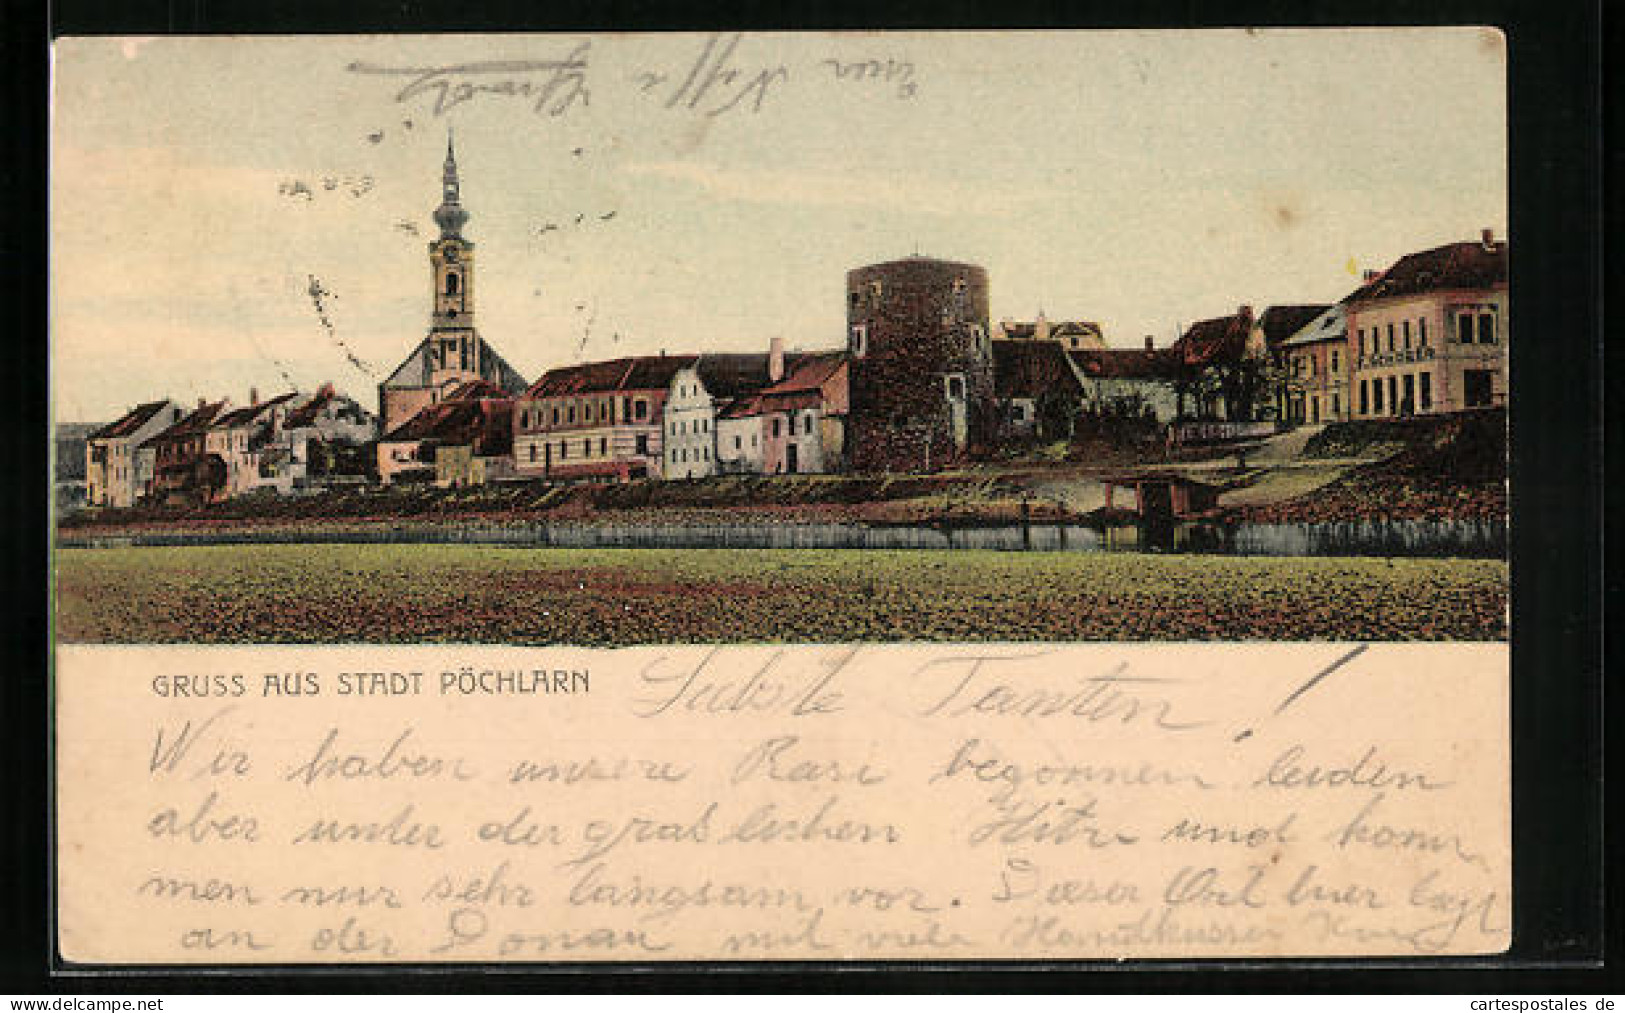 GRUSS AUS STADT PÖCHLARN
Liebste Tanten!
Wir haben unsere begonnen leiden
aber unter der gräslichen Hitze und kom
men nur sehr langsam vor. Dieser Ort hier liegt
an der Donau mit viele Handküsse
Euer Neffe
cartespostales de